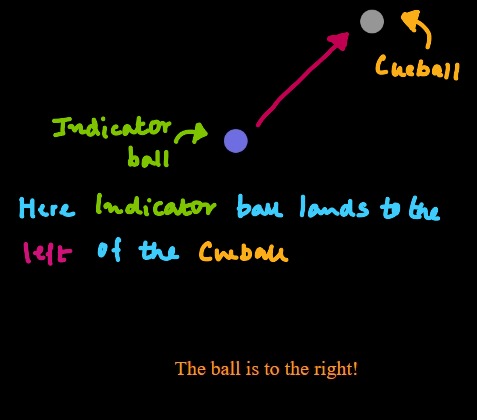 Cueball
Indicator
ball
Here Indicator ball lands to the
left of the Cueball
The ball is to the right!